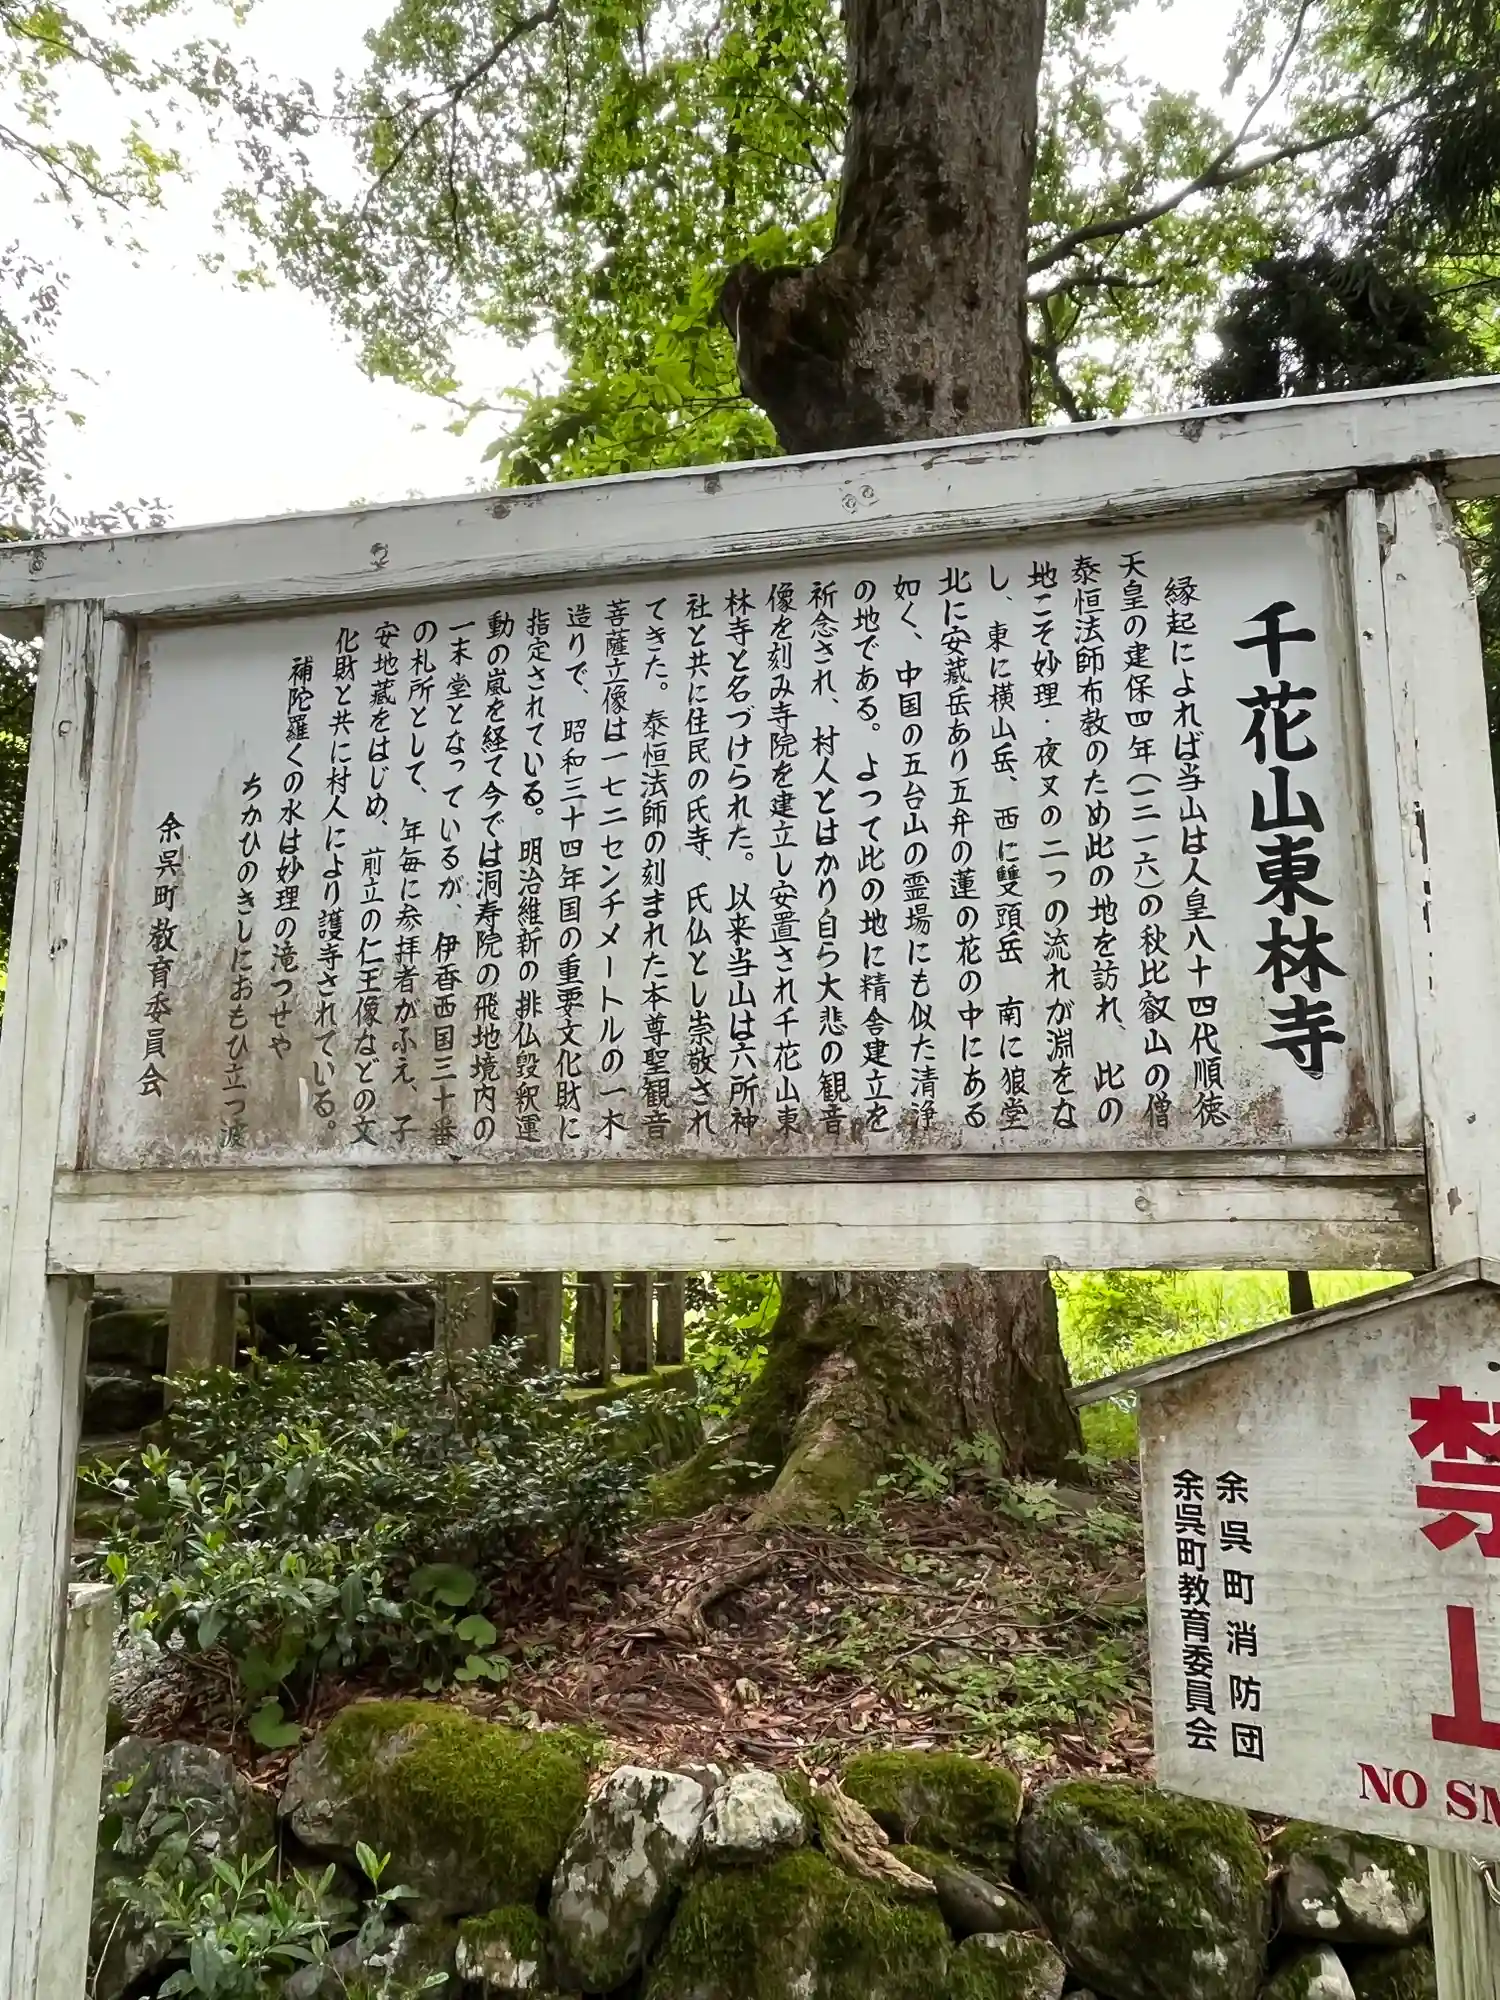 千花山東林寺
縁起によれば当山は人皇八十四代順徳
天皇の建保四年(一二一六)の秋比叡山の僧
泰恒法師布教のため此の地を訪れ、此の
地こそ妙理・夜叉の二つの流れが淵をな
し、東に横山岳、西に雙頭岳 南に狼堂
北に安蔵岳あり五弁の蓮の花の中にある
如く、中国の五台山の霊場にも似た清浄
の地である。よって此の地に精舎建立を
祈念され、村人とはかり自ら大悲の観音
像を刻み寺院を建立し安置され千花山東
林寺と名づけられた。以来当山は六所神
社と共に住民の氏寺、氏仏とし崇敬され
てきた。泰恒法師の刻まれた本尊聖観音
菩薩立像は一七二センチメートルの一木
造りで、昭和三十四年国の重要文化財に
指定されている。明治維新の排仏毀釈運
動の嵐を経て今では洞寿院の飛地境内の
一末堂となっているが、伊香西国三十番
の札所として、年毎に参拝者がふえ、子
安地蔵をはじめ、前立の仁王像などの文
化財と共に村人により護寺されている。
補陀羅くの水は妙理の滝つせや
ちかひのきしにおもひ立つ波
余呉町教育委員会
禁
止
余呉町消防団
余呉町教育委員会
NO SM